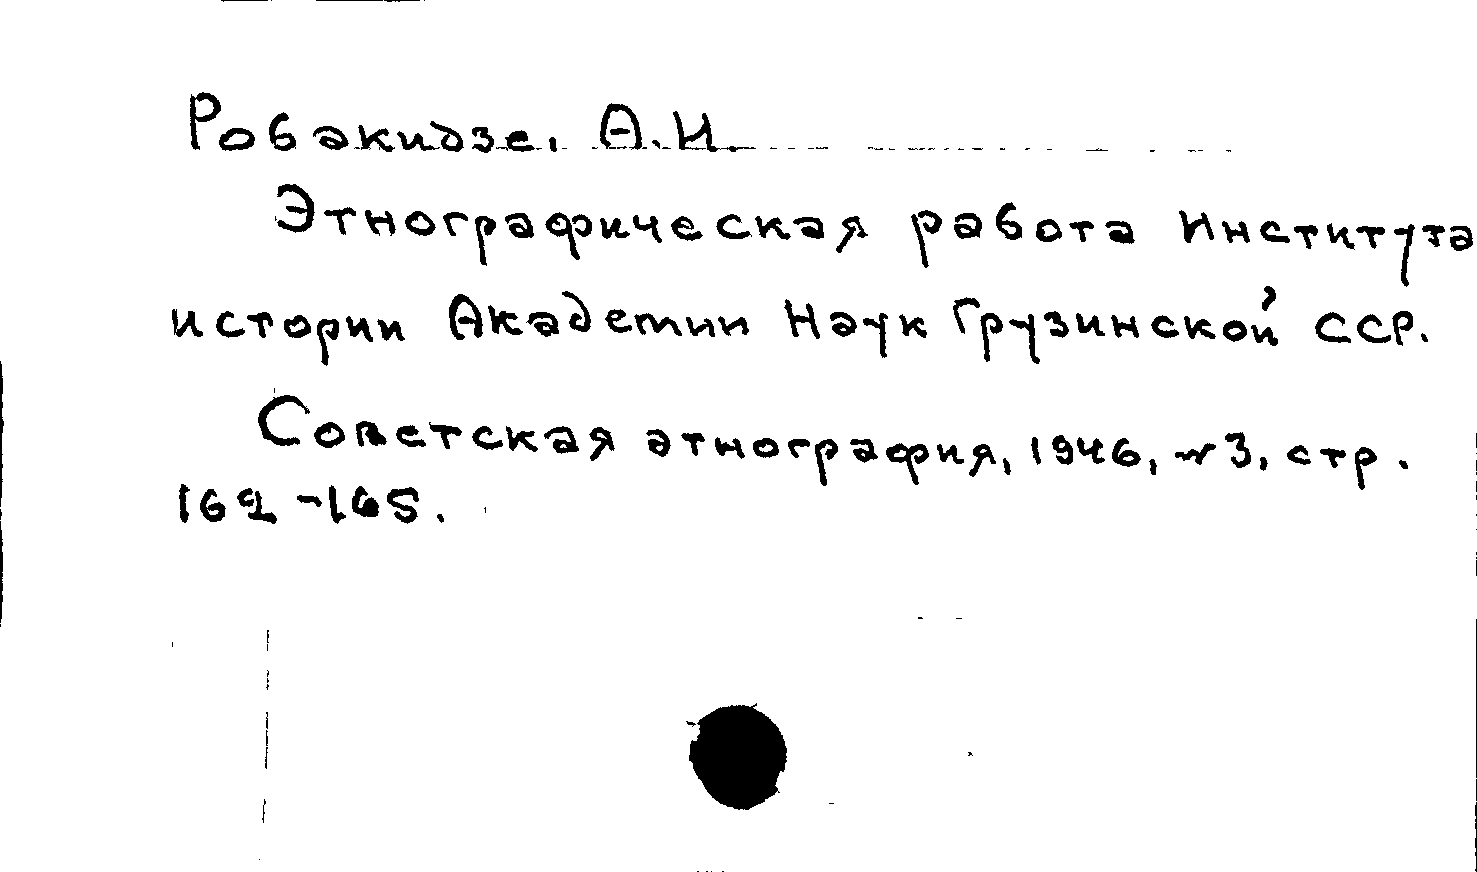 Робакидзе, А.И.
Этнографическая работа Института
истории Академии Наук Грузинской ССР.
Советская этнография, 1946, №3, стр.
162-165.